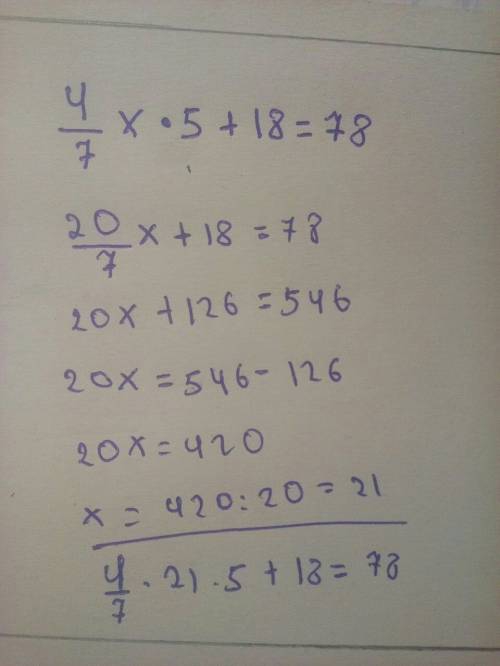 4/7 x · 5 + 18 = 78
20/7 x + 18 = 78
20x + 126 = 546
20x = 546 - 126
20x = 420
x = 420 : 20 = 21
4/7 · 21 · 5 + 18 = 78